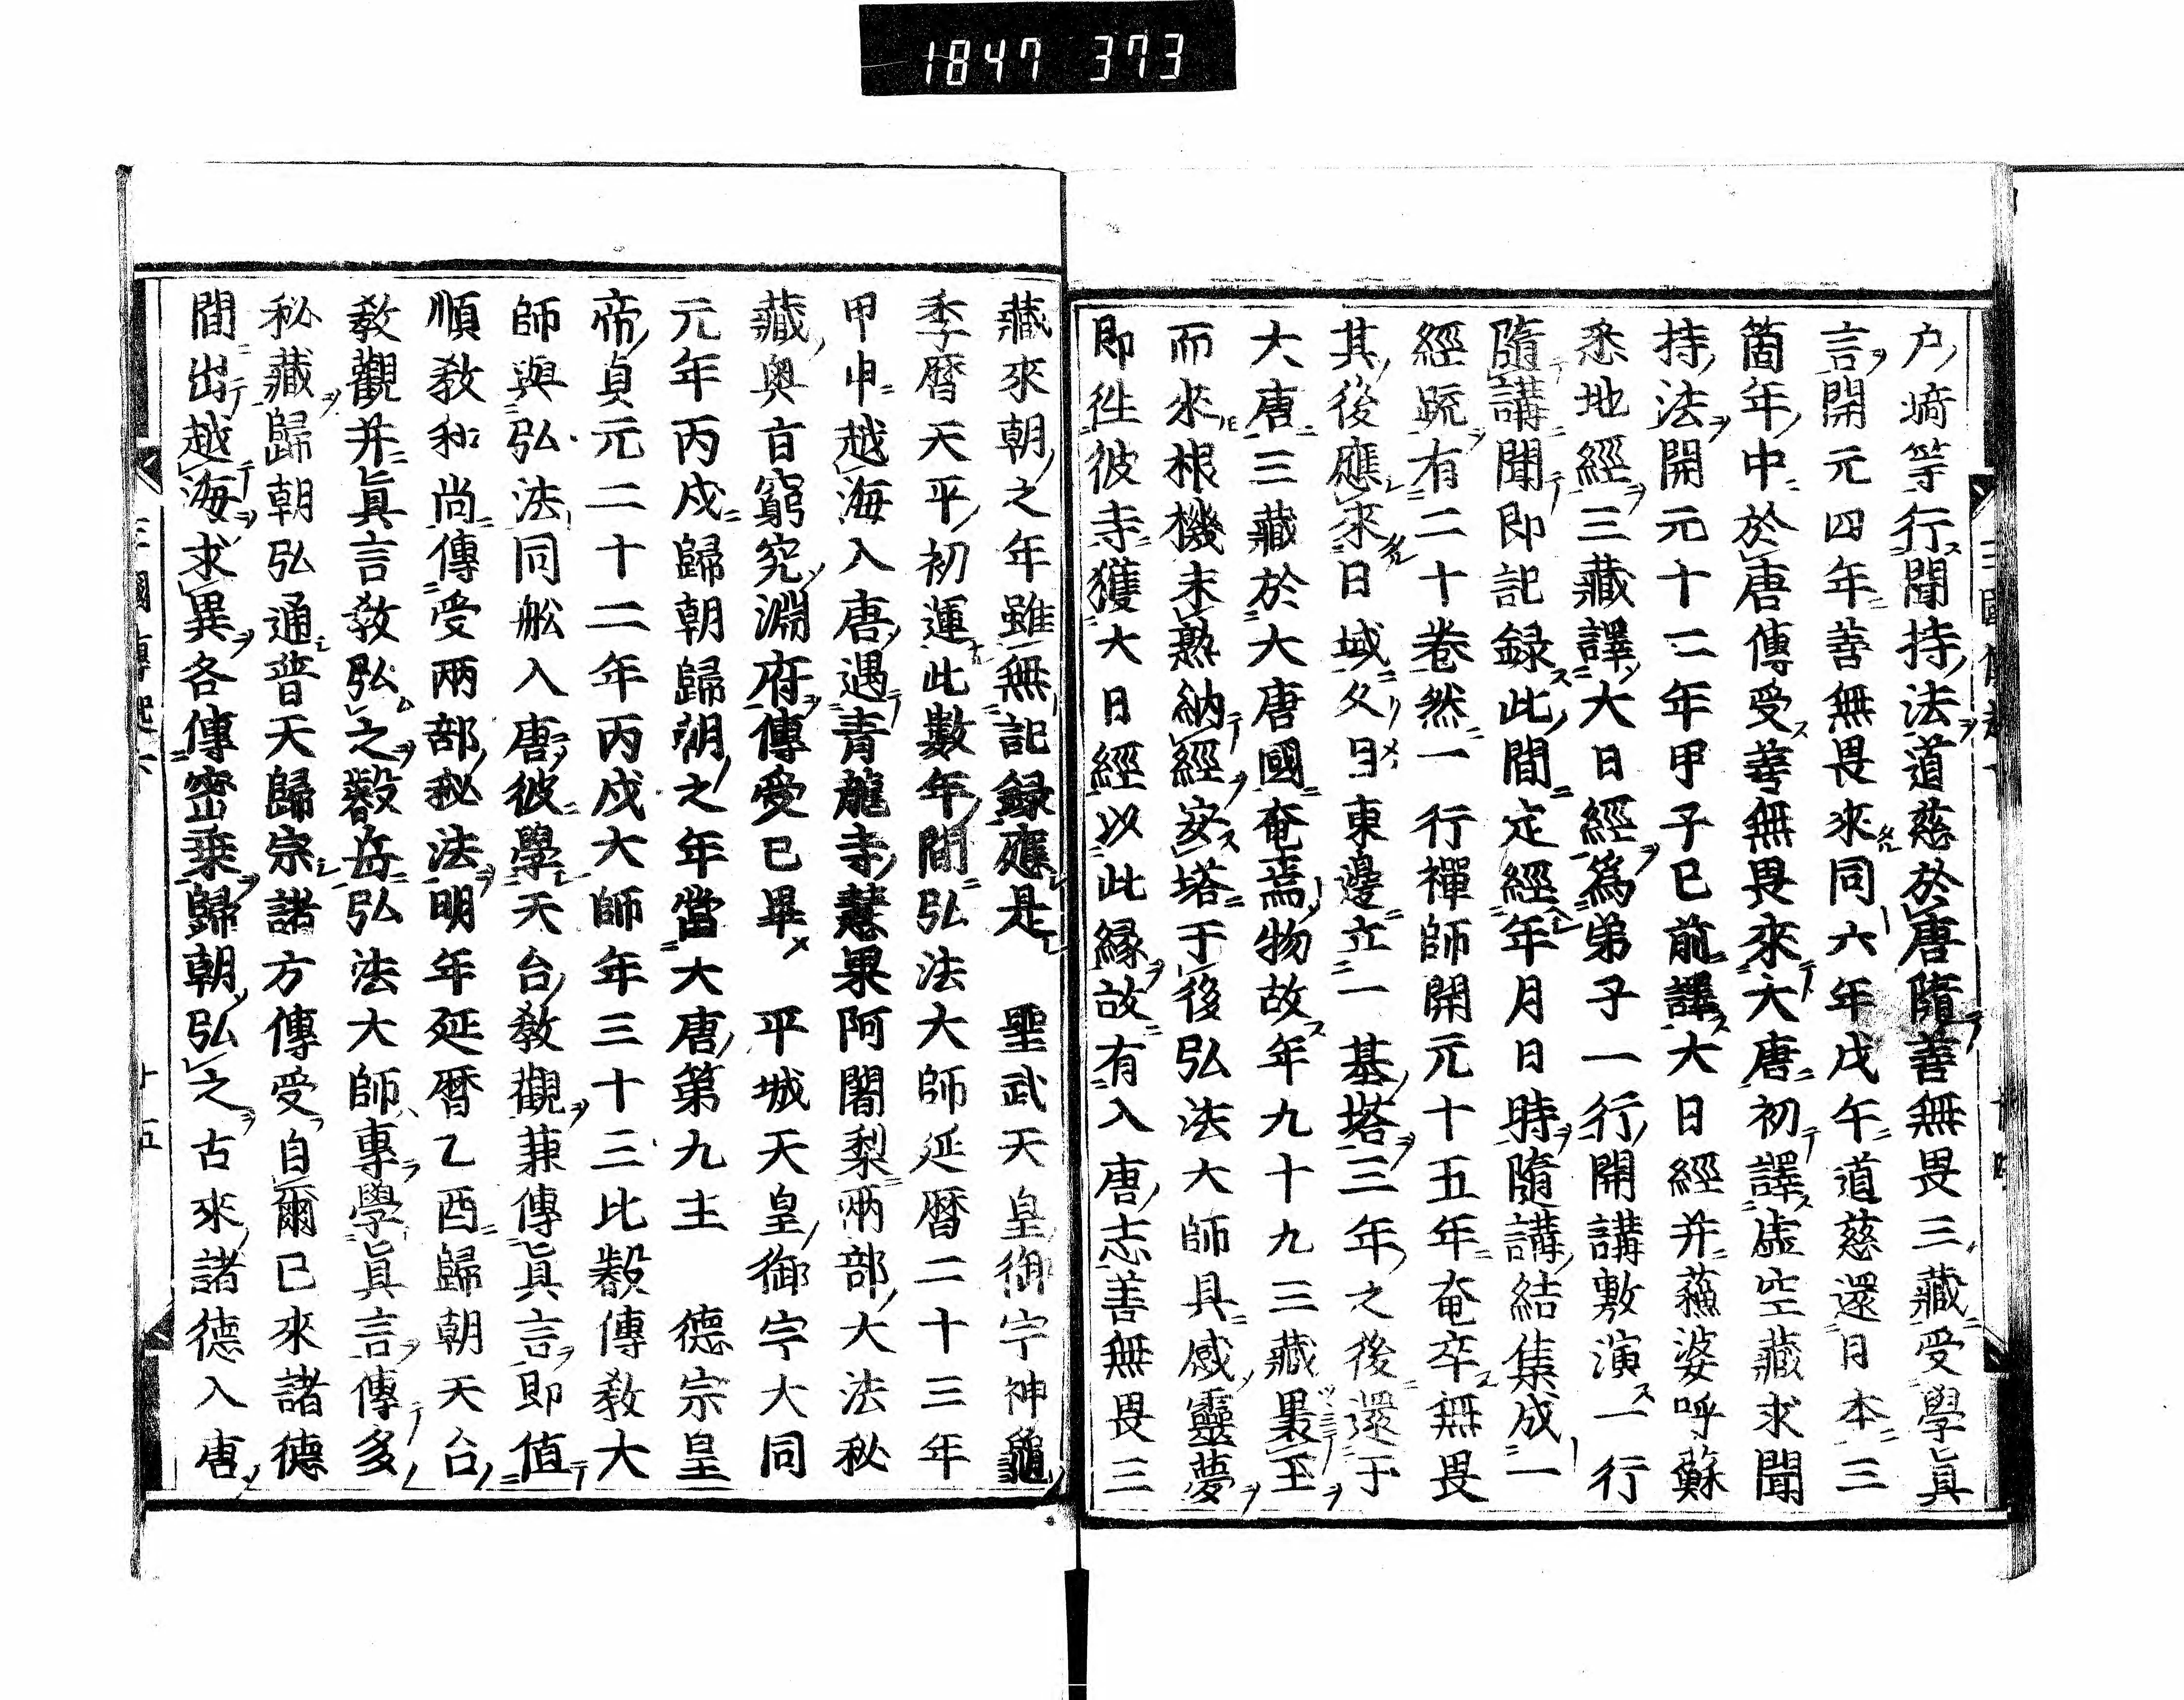 1847 373
戸﨑等行聞持法道慈於唐隨善無畏三藏受學眞
言開元四年善無畏來同六年戊午道慈還日本三
箇年中於唐傳受善無畏來大唐初譯虚空藏求聞
持法開元十二年甲子已前譯大日經并蘓婆呼蘇
悉地經三藏譯大日經爲弟子一行開講敷演一行
隨講聞即記録此間定經年月日時隨講結集成一
經䟽有二十卷然一行禪師開元十五年奄卒無畏
其後應來日域久目東邊立一基塔三年之後還于
大唐三藏於大唐國奄焉物故年九十九三藏裏王
而來根機未熟納經安塔于後弘法大師具感靈夢
即徃彼寺獲大日經以此縁故有入唐志善無畏三
藏來朝之年雖無記録應是　聖武天皇御宇神龜
季暦天平初運此數年間弘法大師延暦二十三年
甲申越海入唐遇青龍寺慧果阿闍梨兩部大法秘
藏奥㫖窮究淵府傳受已畢　平城天皇御宇大同
元年丙戌歸朝歸朝之年當大唐第九主　德宗皇
帝貞元二十二年丙戌大師年三十三比叡傳敎大
師與弘法同舩入唐彼學天台敎觀兼傳眞言即值
順敎和尚傳受兩部秘法明年延暦乙酉歸朝天台
敎觀并眞言敎弘之叡岳弘法大師專學眞言傳多
秘藏歸朝弘通普天歸宗諸方傳受自爾已來諸德
間出越海求異各傳密乘歸朝弘之古來諸德入唐
三國傳起六
十五